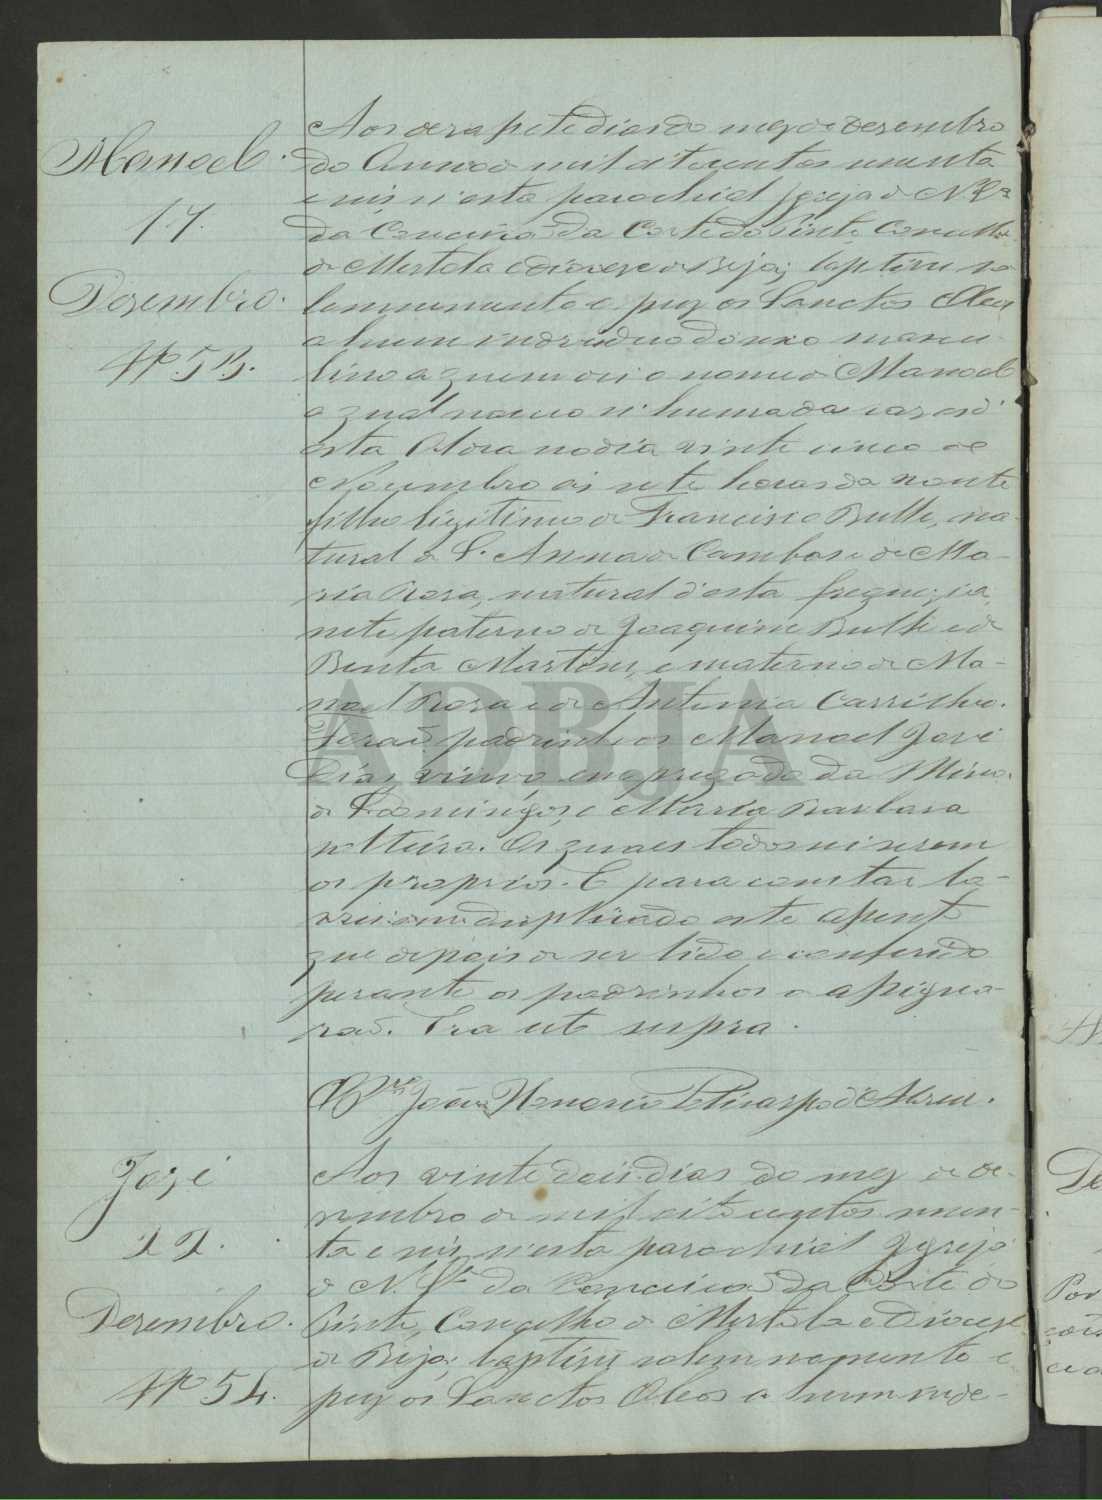 Manoel.
17.
Dezembro.
Nº 53.
Aos desasete dias do mez de Desembro
do Anno de mil oitocentos noventa
e seis n'esta parochial Igreja de N. Srª
da Conceição da Corte do Pinto, Concelho
de Mertola e diocese de Beja; baptisei so
lemnemente e puz os Sanctos Oleos
a hum individuo do sexo mascu
lino a quem dei o nome de Manoel
e qual nasceu n'huma das casas d'
esta Aldea no dia vinte cinco de
Novembro ás sete horas da noute
filho legitimo de Francisco Bulle, na-
tural de S. Anna de Cambas e de Ma-
ria Rosa, natural d'esta freguezia,
neto paterno de Joaquim Bulle e de
Benta Martins, e materno de Ma-
noel Rosa e de Antonia Carrilho.
Forão padrinhos Manoel José
Dias, viuvo, empregado da Mina
de S. Domingos, e Maria Barbara
solteira. Os quaes todos sei serem
os proprios. E para constar la-
vrei em duplicado este assento
que depois de ser lido e conferido
perante os padrinhos o assigna-
rão. Era ut supra.
João Honorio Policarpo d'Abreu.
José
22.
Dezembro.
Nº 54.
Aos vinte dois dias do mez de De-
zembro de mil oitocentos noven-
ta e seis n'esta parochial Igreja
de N. Srª da Conceicão da Corte do
Pinto, Concelho de Mertola e Diocese
de Beja; baptisei solemnemente e
puz os Sanctos Oleos a hum inde-
De
Por
ADBJA